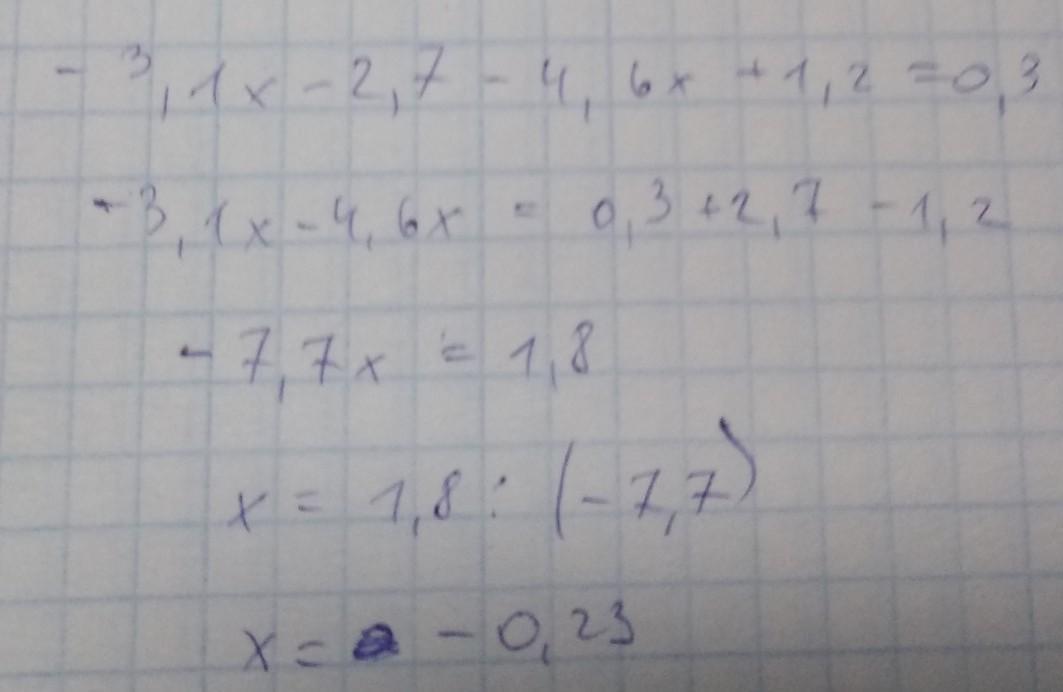 - 3,1x - 2,7 - 4,6x + 1,2 = 0,3
- 3,1x - 4,6x = 0,3 + 2,7 - 1,2
- 7,7x = 1,8
x = 1,8 : (- 7,7)
x = - 0,23